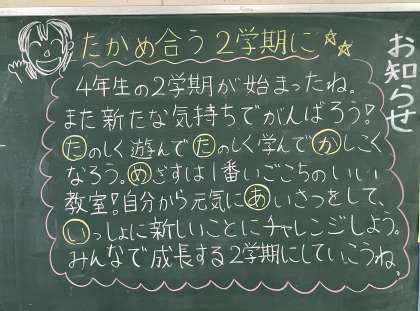 たかめ合う2学期に
お知らせ
4年生の2学期が始まったね。
また新たな気持ちでがんばろう!
たのしく遊んでたのしく学んでかしこく
なろう。めざすは1番いごこちのいい
教室!自分から元気にあいさつをして、
いっしょに新しいことにチャレンジしよう。
みんなで成長する2学期にしていこうね。